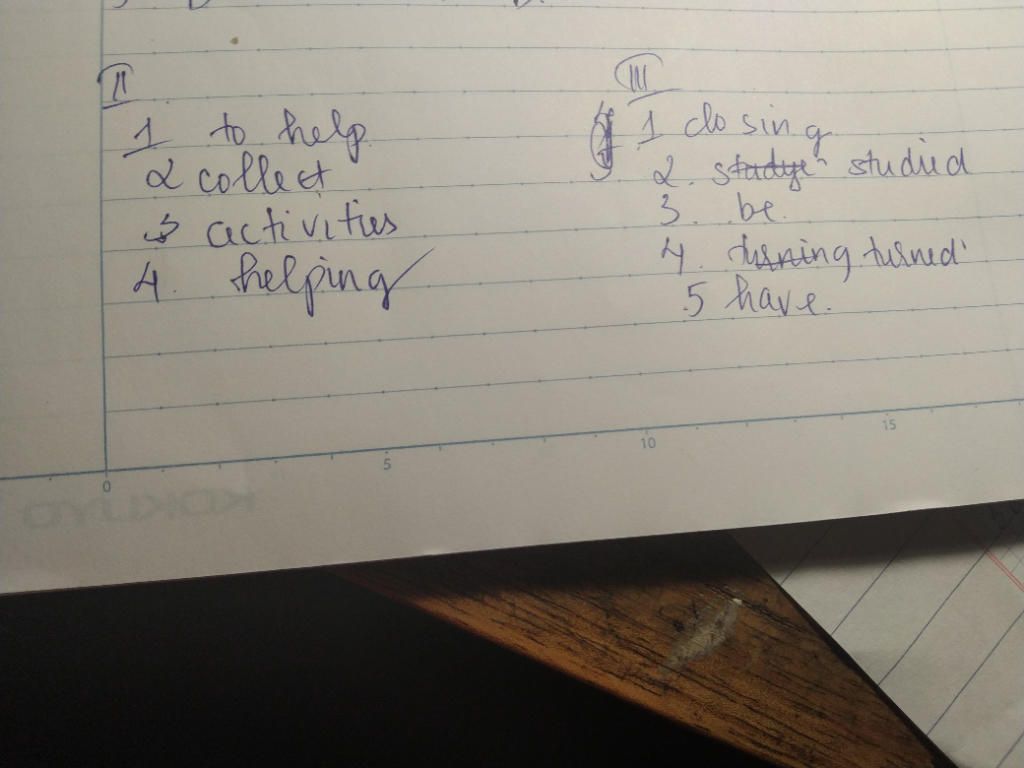 II
1 to help
2 collect
3 activities
4. helping
III
1 closing
2. studye studied
3. be.
4. turning turned
5 have.
0 5 10 15
KOKUYO